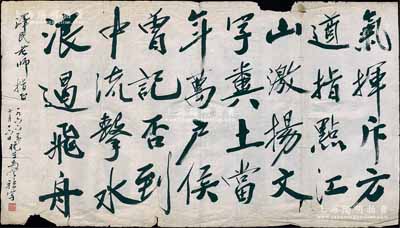 氣揮斥方
遒指點江
山激揚文
字糞土當
年萬户侯
曾記否到
中流擊水
浪遏飛舟
澤民老師 指正
一九六六年